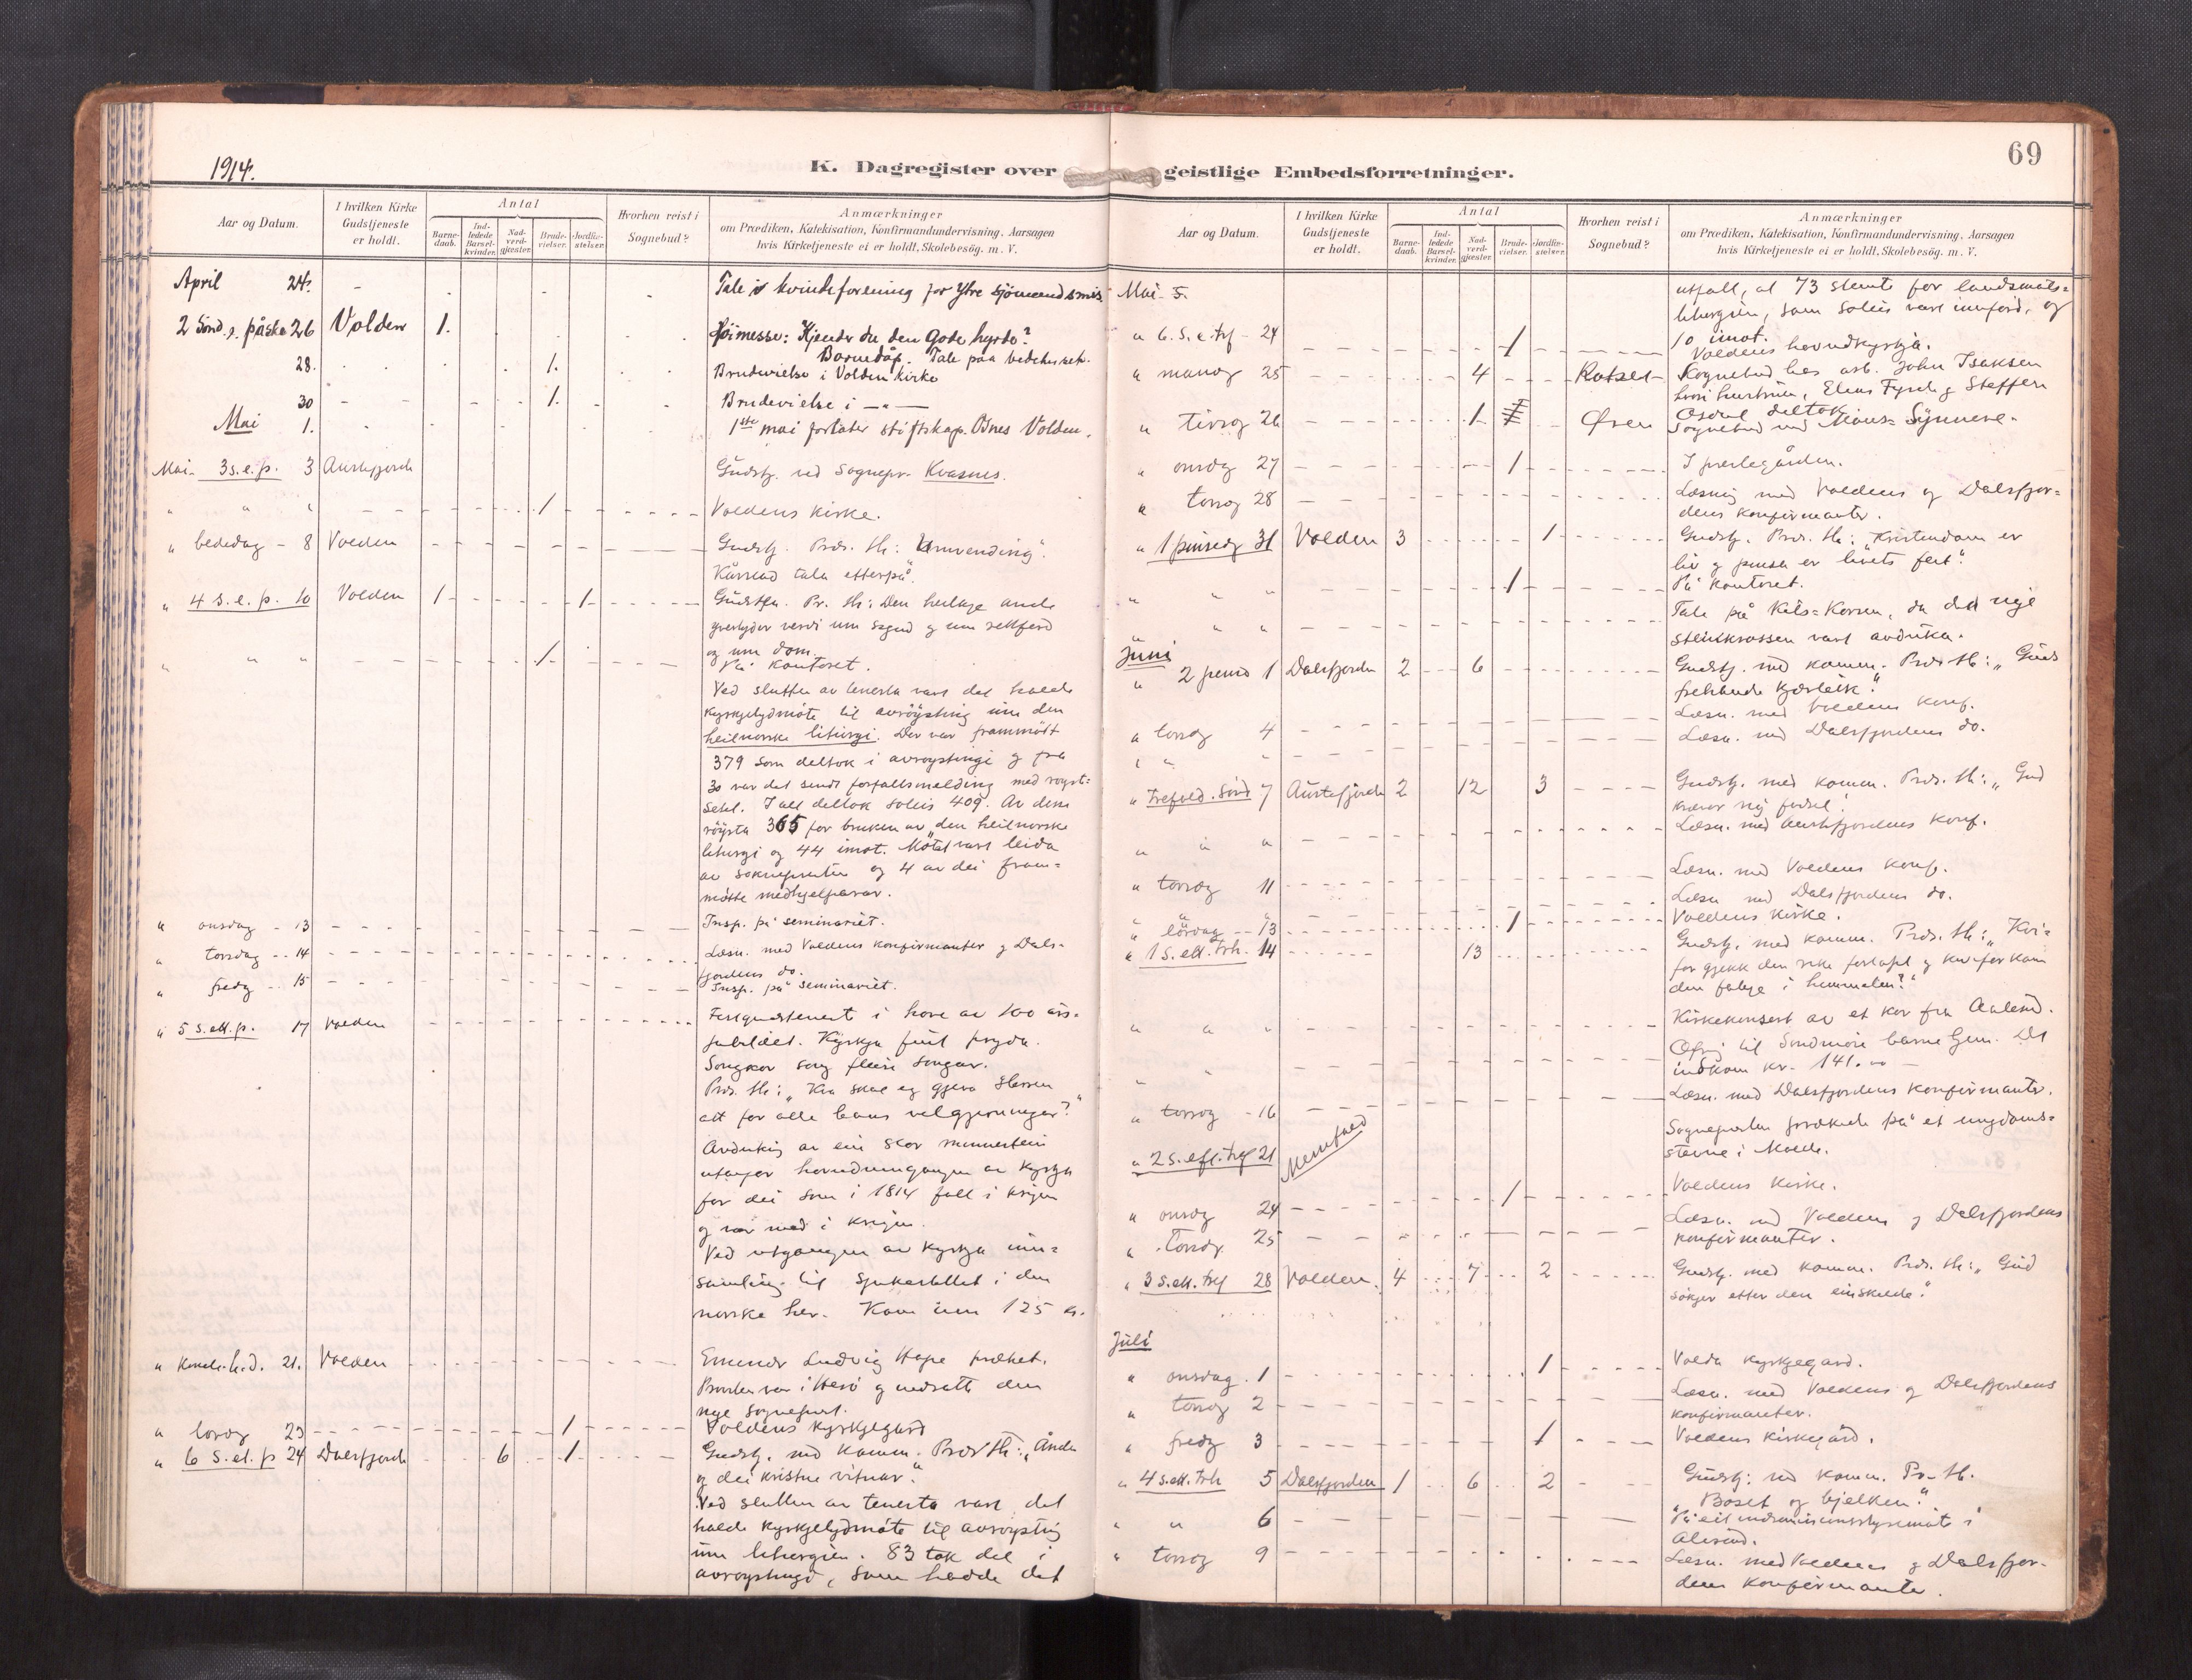 1914.
K. Dagregister over
Aar og Datum.
I hvilken Kirke Gudstjeneste er holdt.
Antal
Barne-daab.
Ind-ledede Barsel-kvinder.
Nad-verd-gjæster.
Brude-vielser.
Jordfæ-stelser.
Hvorhen reist i Sognebud?
Anmærkninger
om Prædiken, Katekisation, Konfirmandundervisning, Aarsagen
hvis Kirketjeneste ei er holdt, Skolebesög. m. V.
April 24. Tale i kvindeforening for Ytre sjömandsmis.
2 Sönd. e. påske 26 Volden 1. Höimesse: "Kjender du den gode hyrde?
Barnedåp. Tale paa bedehuset.
28. 1. Brudevielse i Volden kirke
30 1. Brudevielse i — " —
Mai 1. 1ste mai forlater stiftskap. Osnes Volden.
Mai - 3 s. e. p. 3 Austefjord Gudstj. ved Sognepr. Kvasnes.
" " " 1 Voldens kirke.
" bededag - 8 Volden Gudstj. Præs. th: "Umvending".
Kårstad tala etterpå.
" 4 s. e. p. 10 Volden 1 1 Gudstj. Pr. th: Den heilage ande
yvertyder verdi um synd og um rettferd
og um dom.
" " " 1 På kontoret.
Ved slutten av tenesta vart det halde
kyrkjelydmöte til avröysting um den
heilnorske liturgi. Der var frammött
379 som deltok i avröystingi og fra
30 var det sendt forfallsmelding med röyst=
setel. I alt deltok soleis 409. Av dem
röysta 365 for bruken av "den heilnorske
liturgi og 44 imot. Mötet vart leida
av soknepresten og 4 av dei fram=
mötte medhjelparar.
" onsdag - 13 Insp. på seminariet.
" torsdag - 14 Læsn. med Voldens konfirmanter og Dals-
fjordens do.
" fredg - 15 Insp. på seminariet.
" 5 s. ett. p. 17 Volden Festgudstenest i höve av 100 års-
jubilæet. Kyrkja fint pryda.
Songkor song fleire songar.
Præs. th: "Kva skal eg gjeva Herren
att for alle hans velgjerningar?"
Avduking av ein stor minnestein
utanfor hovudinngangen av kyrkja
for dei som i 1814 fall i krigen
og var med i krigen.
Ved utgangen av kyrkja inn=
samling til sjukestellet i den
norske her. Kom inn 125 kr.
" Kristi h.d. 21. Volden Emissær Ludvig Hope præket.
Provsten var i Herö og indsatte den
nye sogneprest.
" lördg 23 1 Voldens kyrkjegard
" 6 s. et. p 24 Dalsfjord 6 1 Gudstj. med komm. Præs th: "Ånden
og dei kristne vitnar."
Ved slutten av tenesta vart det
halde kyrkjelydmöte til avröysting
um liturgien. 83 tok del i
avröystingi, som hadde det
69
geistlige Embedsforretninger.
Aar og Datum.
I hvilken Kirke Gudstjeneste er holdt.
Antal
Barne-daab.
Ind-ledede Barsel-kvinder.
Nad-verd-gjæster.
Brude-vielser.
Jordfæ-stelser.
Hvorhen reist i Sognebud?
Anmærkninger
om Prædiken, Katekisation, Konfirmandundervisning, Aarsagen
hvis Kirketjeneste ei er holdt, Skolebesög. m. V.
Mai - 5. utfall, at 73 stemte for landsmåls=
liturgien, som soleis vart innförd, og
10 imot.
" 6. S. e. - 24 1 Voldens hovudkyrkja.
" mandg 25 4 Rotset Sognebud hos arb. John Isaksen
Elias og Steffen
deltok
" tirsdg 26 1 Øren Sognebud med Synneve.
" onsdg 27 1 I prestegården.
" torsdg 28 Læsning med Voldens og Dalsfjor=
dens konfirmanter.
" 1 pinsedg 31 Volden 3 1 Gudstj. Præs. th: "Kristendom er
liv og pinsa er livets fest."
" " " 1 På kontoret.
" " " Tale på da det nye
steinkrossen vart avduka.
Juni
" 2 pinsd 1 Dalsfjorden 2 6 Gudstj. med komm. Præs th: "Guds
frelsande kjærleik."
" torsdg 4 Læsn. med Voldens konf.
" " Læsn. med Dalsfjordens do.
" Trefold. sönd 7 Austefjorden 2 12 3 Gudstj. med komm. Præs. th: "Gud
krever ny födsel.
" " " Læsn. med Austefjordens konf.
" torsdg 11 Læsn. med Voldens konf.
" " " Læsn med Dalsfjordens do.
" lördag - 13 1 Voldens kirke.
" 1 s. ett. trh. 14 13 Gudstj. med komm. Præs. th: "Kvi=
for gjekk den rike fortapt og kvifor kom
den fatige i himmelen?"
" " " Kirkekonsert av et kor fra Aalesund.
" " Ofring til Söndmöre barnehjem. Det
indkom kr. 141.00
" torsdg - 16 Læsn. med Dalsfjordens konfirmanter.
" 2 s. eft. tref 21 Messefald Sognepresten prækede på et ungdoms=
stevne i Molde.
" onsdg 24 1 Voldens kirke.
" Torsdg. 25 Læsn. med Voldens og Dalsfjordens
konfirmanter.
" 3 s. ett. tref 28 Volden. 4 7 2 Gudstj. med komm. Præs. th: "Gud
sökjer etter den einskilde."
Juli
" onsdag 1 1 Volda kyrkjegard.
" torsdg 2 Læsn. med Voldens og Dalsfjordens
konfirmanter.
" fredg 3 1 Voldens kirkegård.
" 4 s. ett. trh 5 Dalsfjorden 1 6 2 Gudstj. med komm. Pr. th.
"Boset og bjelken."
" " 6 På eit indremisionsstyremöte i
Ålesund.
" torsdg 9 Læsn. med Voldens og Dalsfjor-
dens konfirmanter.